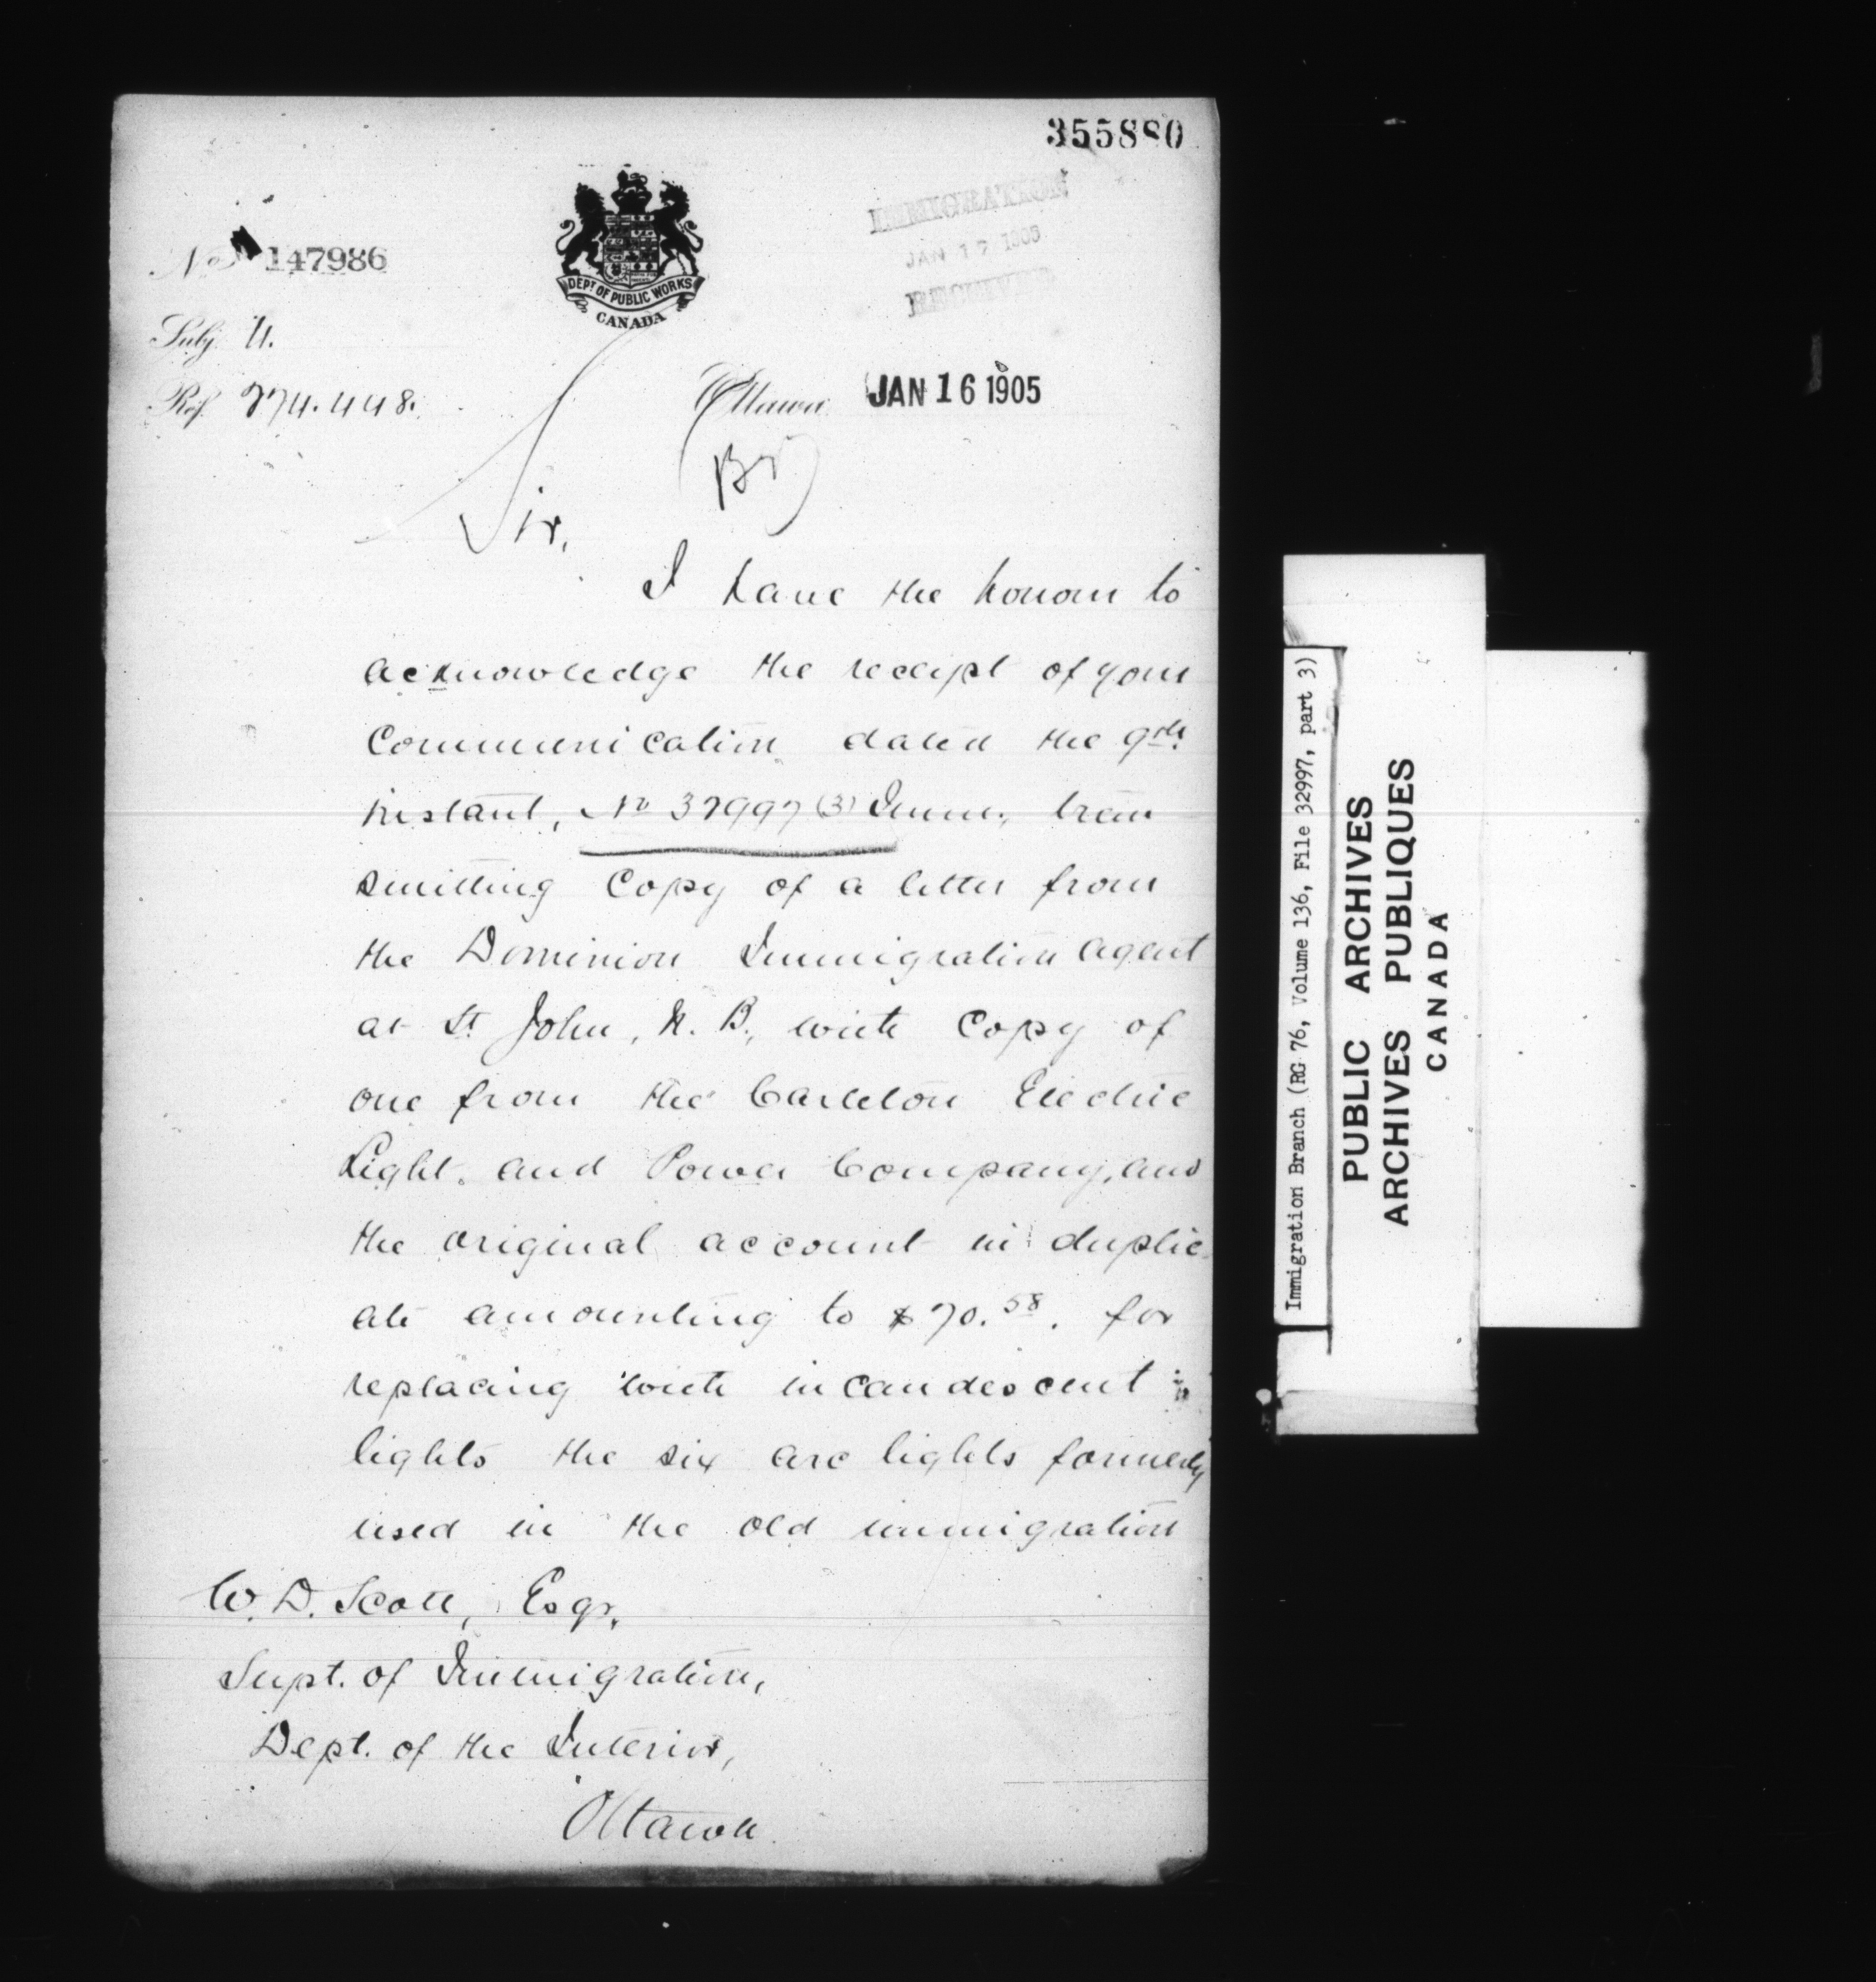 355880
IMMIGRATION
JAN 17 1905
RECEIVED
No 147986
DEPT. OF PUBLIC WORKS
CANADA
Subj. U.
Ref. 274.448.
Ottawa JAN 16 1905
Sir,
I have the honour to
acknowledge the receipt of your
communication dated the 9th
instant, No 32997 (3) Imm., tran
smitting copy of a letter from
the Dominion Immigration Agent
at St. John, N.B., with copy of
one from the Carleton Electric
Light and Power Company, and
the original account in duplic-
ate amounting to $70.58. for
replacing with incandescent
lights the six arc lights formerly
used in the old immigration
W. D. Scott, Esqr.
Supt. of Immigration,
Dept. of the Interior,
Ottawa
Immigration Branch (RG 76, Volume 136, File 32997, part 3)
PUBLIC ARCHIVES
ARCHIVES PUBLIQUES
CANADA